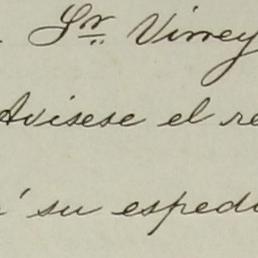 Sr. Virrey
Avisese el re
su espedi